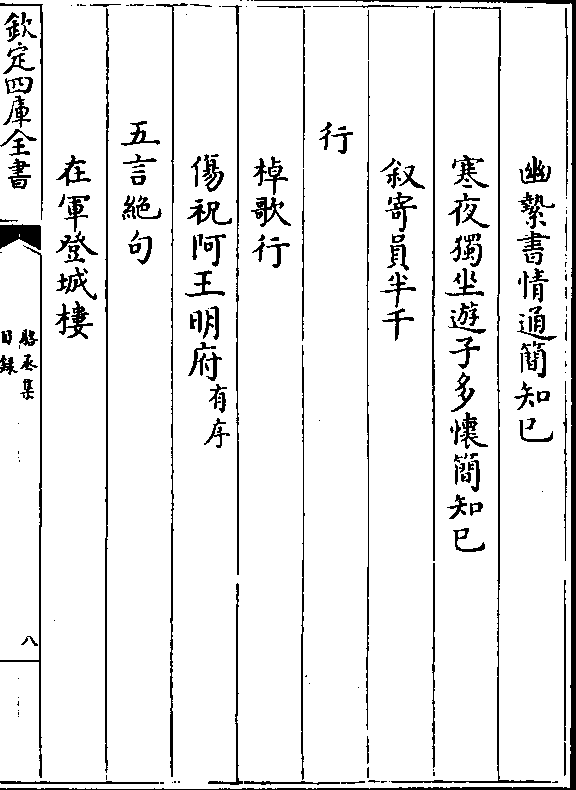 幽縶書情通簡知已
寒夜獨坐遊子多懷簡知已
叙寄員半千
行
棹歌行
傷祝阿王明府有序
五言絶句
在軍登城樓
欽定四庫全書
駱丞集
目録
八